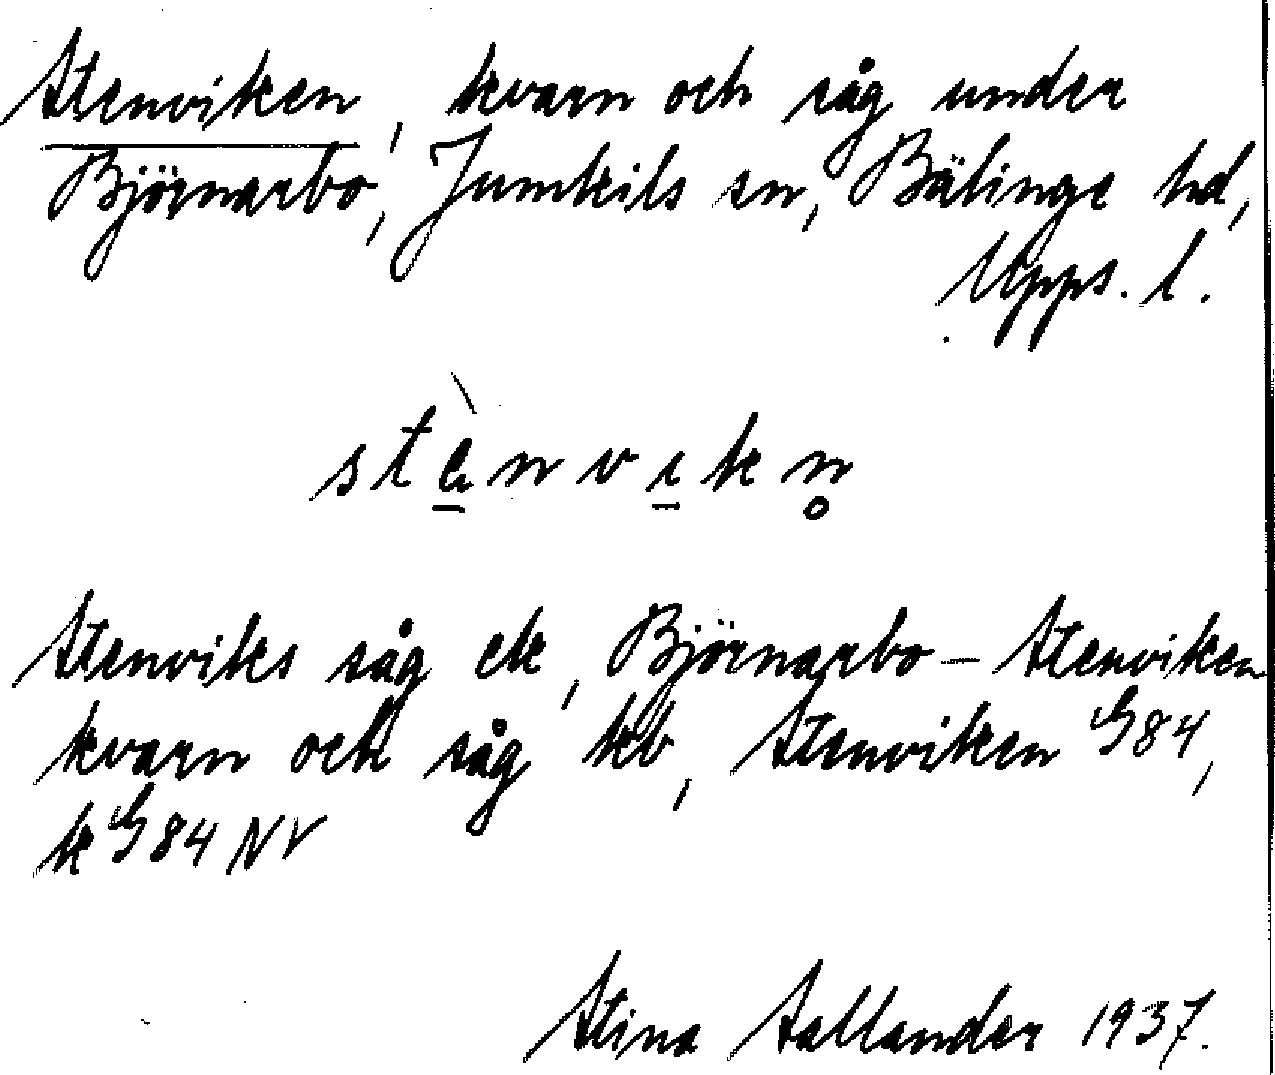 Stenviken, kvarn och såg under
Björnarbo, Jumkils sn, Bälinge hd,
Upps. l.
stè̱nvi̱kn̥
Stenviks såg ek, Björnarbo – Stenviken
kvarn och såg kb, Stenviken G84,
k G84 NV
Stina Sallander 1937.